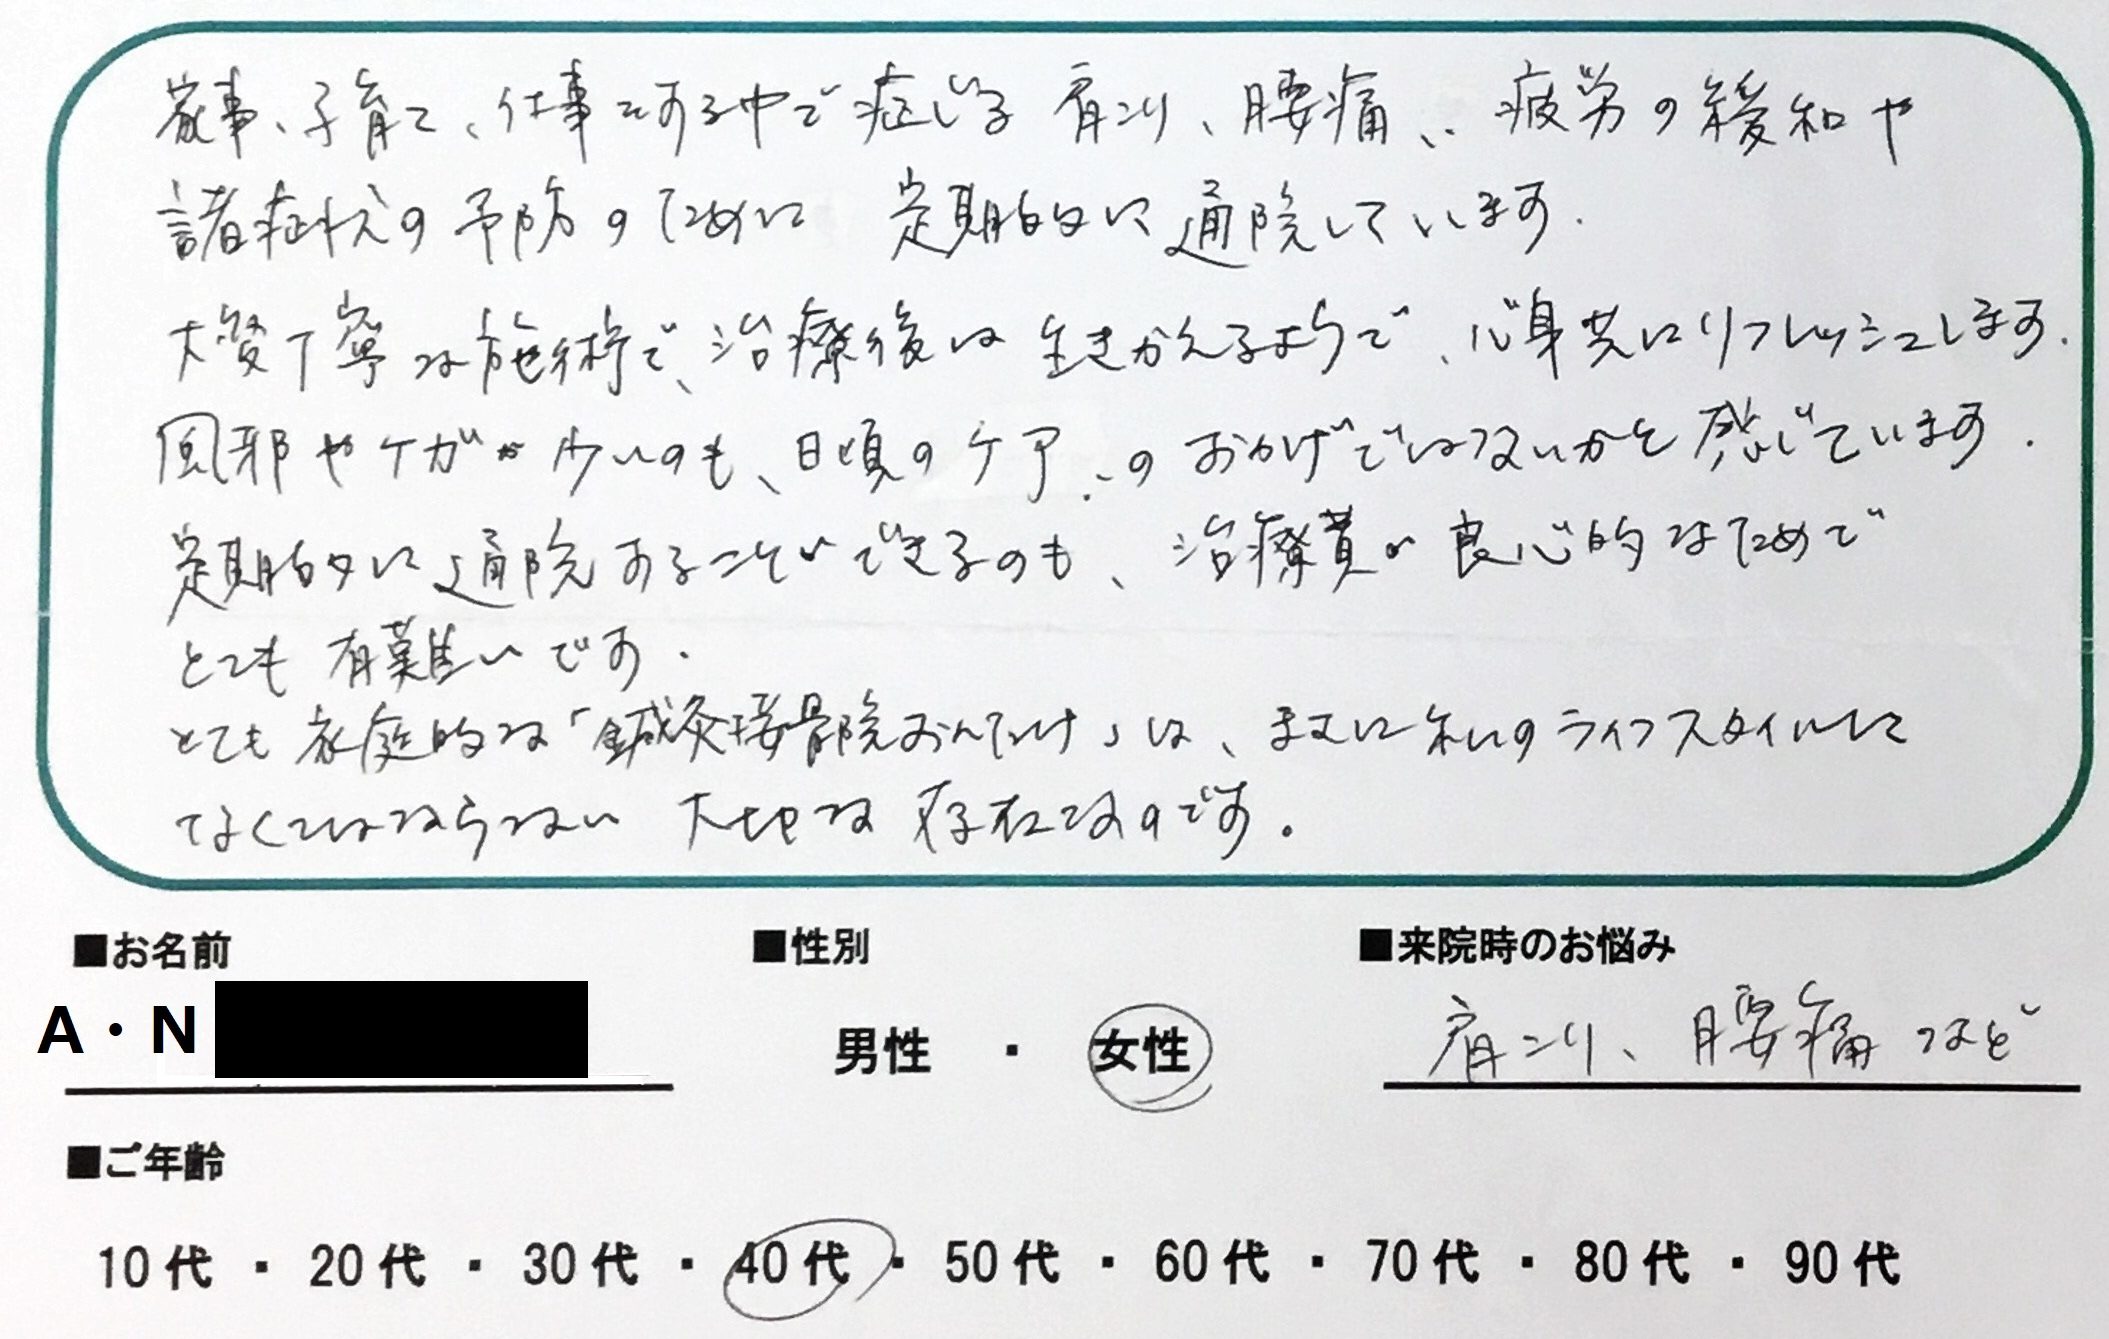 家事、子育て、仕事をする中で症じる 肩こり、腰痛、疲労の緩和や
諸症状の予防のために 定期的に通院しています.
大変丁寧な施術で、治療後は生きかえるようで、心身共にリフレッシュします.
風邪やケガが少いのも、日頃のケアのおかげではないかと感じています.
定期的に通院することができるのも、治療費が良心的なためで
とても有難いです.
とても家庭的な「鍼灸接骨院おんたけ」は、まさに私のライフスタイルに
なくてはならない 大切な存在なのです。
■お名前 ■性別 ■来院時のお悩み
A・N 男性 ・ 女性 肩こり、腰痛など
■ご年齢
10代 ・ 20代 ・ 30代 ・ 40代 ・ 50代 ・ 60代 ・ 70代 ・ 80代 ・ 90代